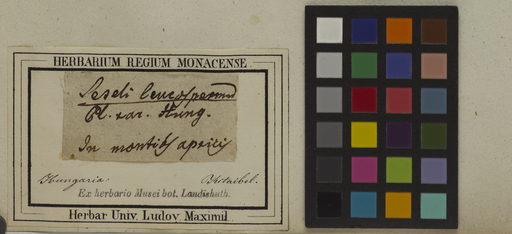 HERBARIUM REGIUM MONACENSE.
Seseli leucospermum
Pl. rar. Hung.
In montib apricis
Hungaria. Kitaibel.
Ex herbario Musei bot. Landishuth.
Herbar Univ. Ludov. Maximil.